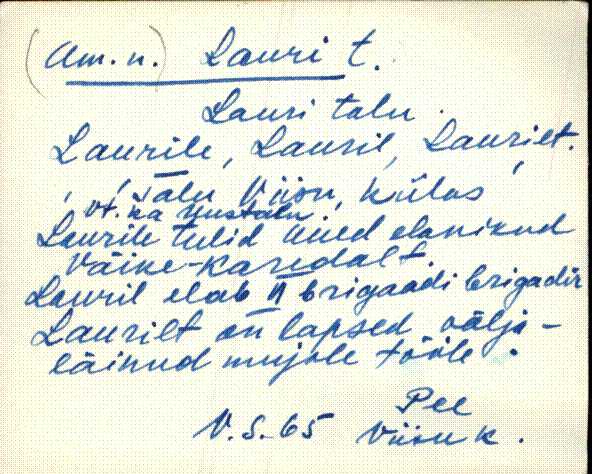 (Am.n.) Lauri t.
Lauri talu.
Laurile, Lauril, Laurilt.
Talu Viisu külas
vt. ka Uustalu.
Laurile tulid uued elanikud
Väike-Karedalt.
Lauril elab II brigaadi brigadir
Laurilt on lapsed välja-
läinud mujale tööle.
Pee
V.S.65 Viisu k.